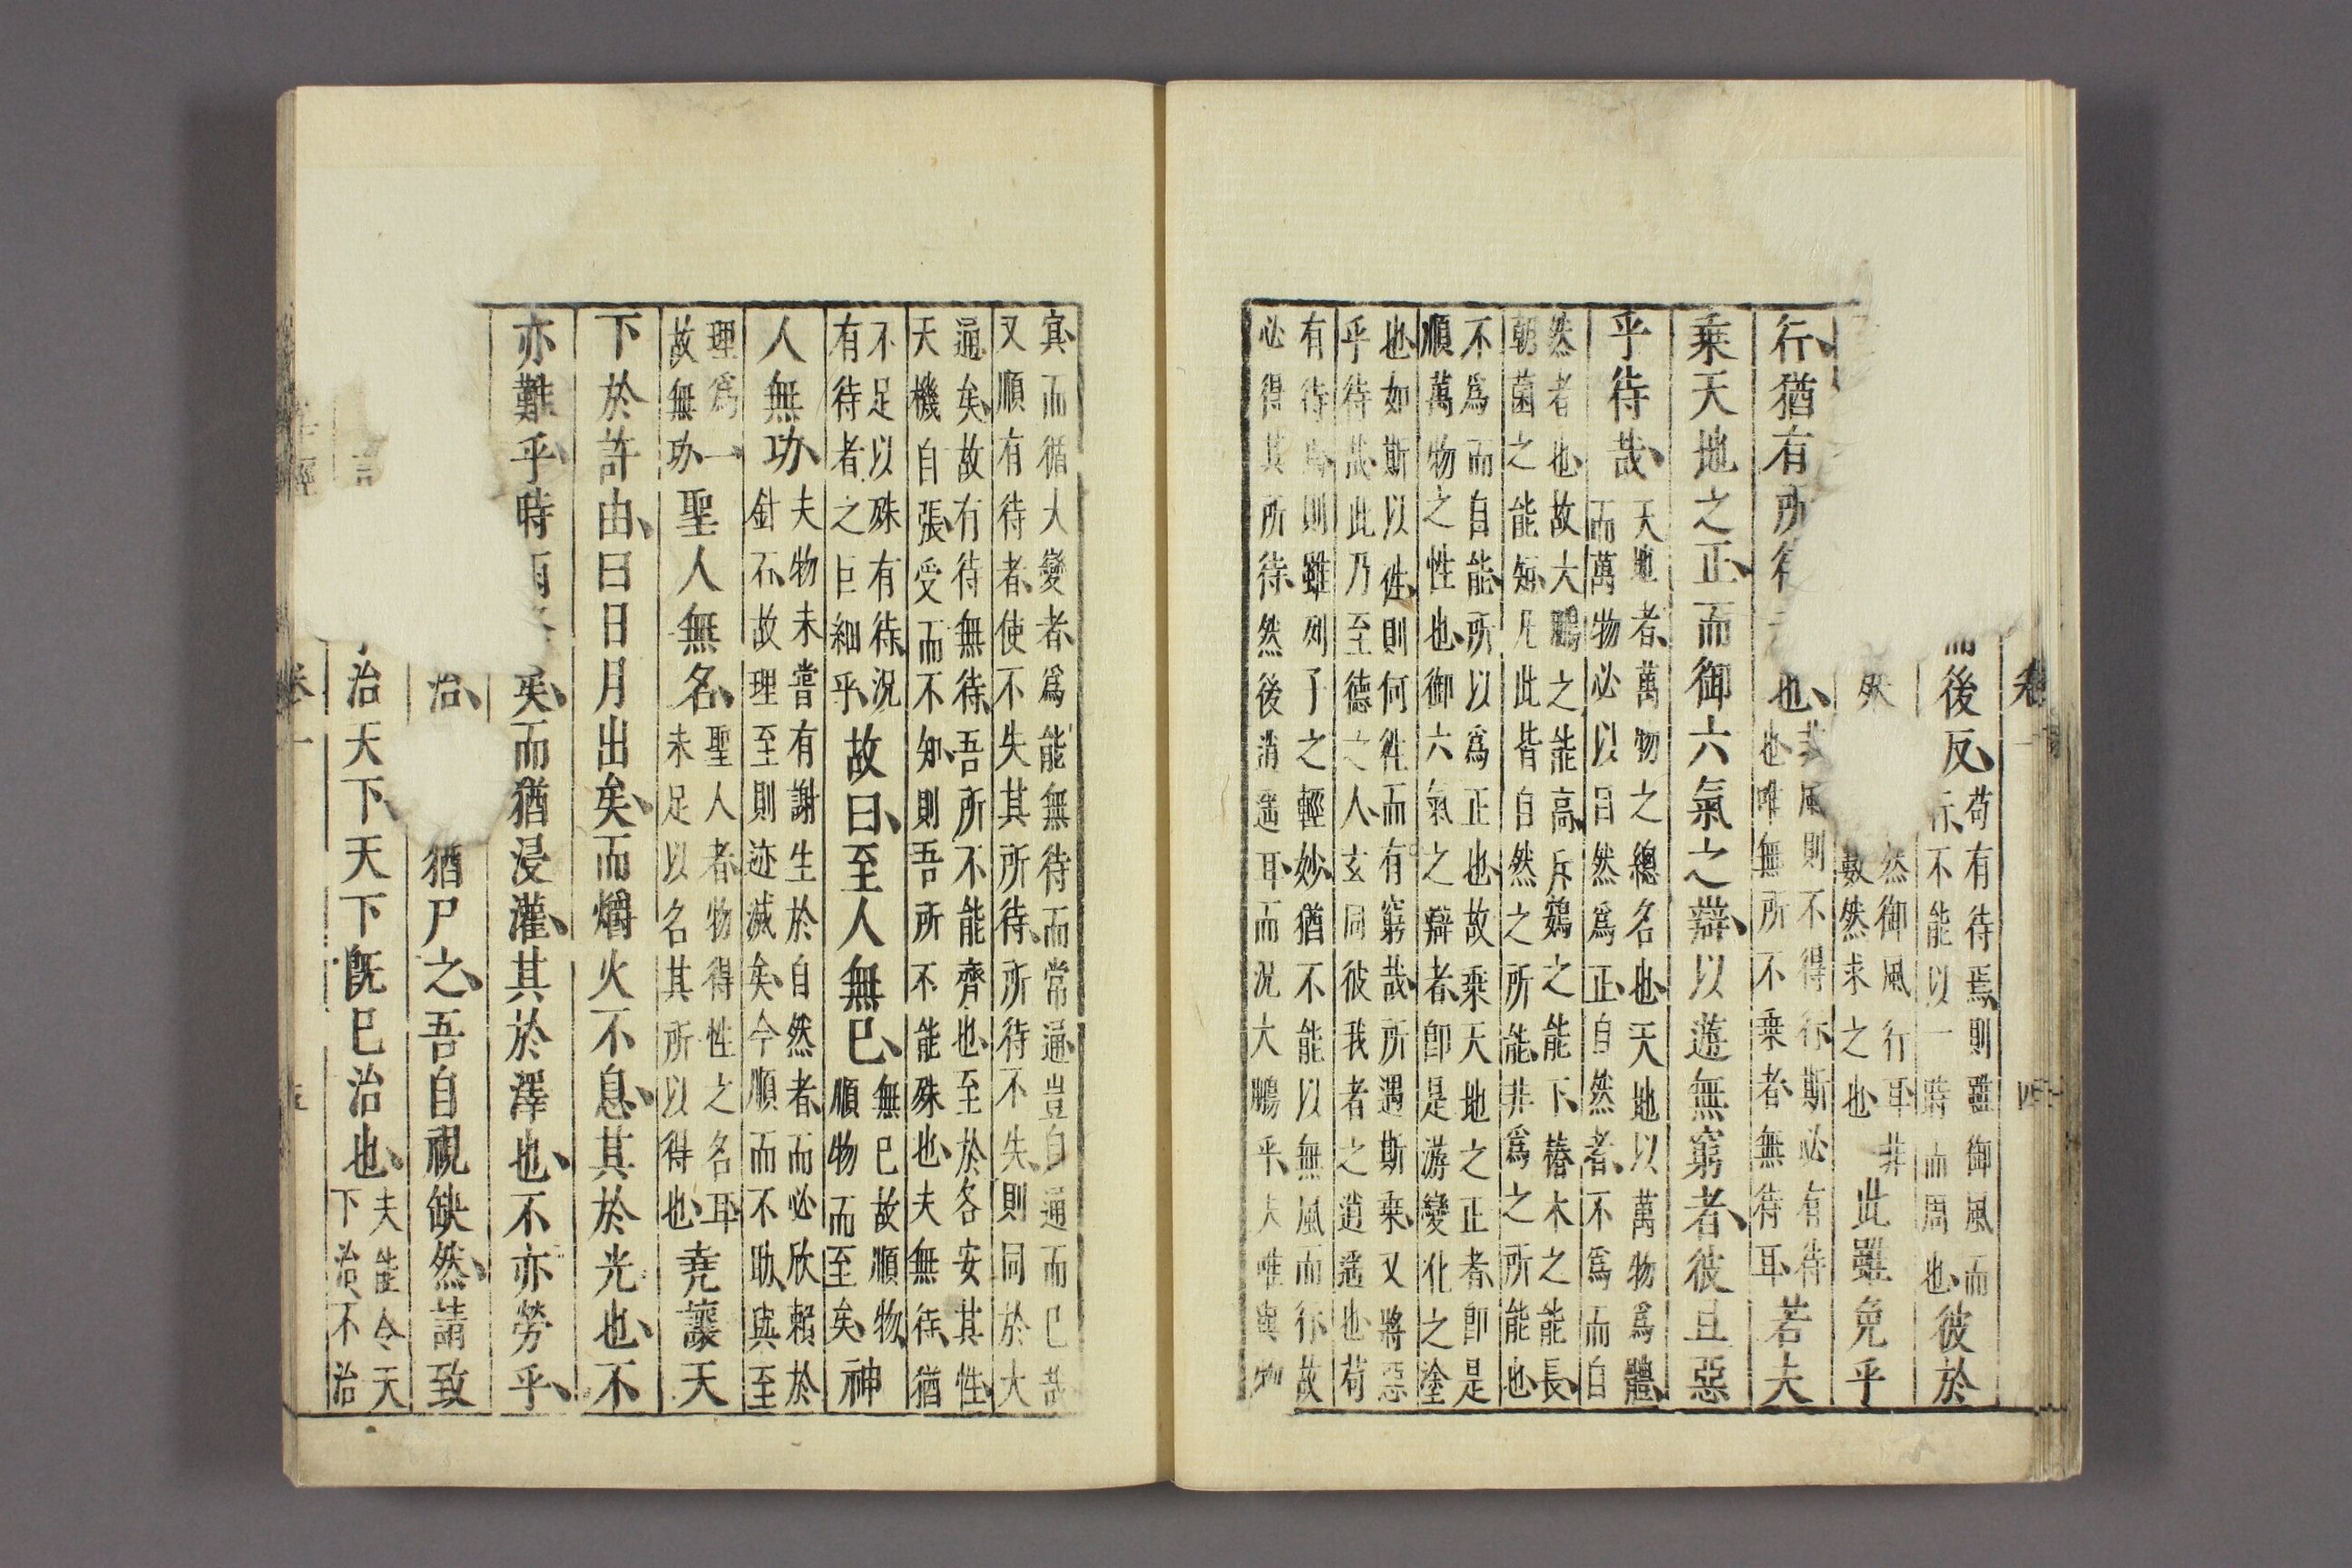 卷一 四
而後反、苟有待焉、則雖御風而
行、不能以一時而周也、彼於
然御風行耳、非
數然求之也、此雖免乎
行、猶有所待者也、非風則不得行、斯必有待
也、唯無所不乗者、無待耳、若夫
乗天地之正、而御六氣之辯、以遊無窮者、彼且惡
乎待哉、天地者、萬物之總名也、天地以萬物爲體、
而萬物必以自然爲正、自然者、不爲而自
然者也、故大鵬之能高、斥鷃之能下、椿木之能長、
朝菌之能短、凡此皆自然之所能、非爲之所能也、
不爲而自能、所以爲正也、故乗天地之正者、即是
順萬物之性也、御六氣之辯者、即是游變化之塗
也、如斯以徃、則何徃而有窮哉、所遇斯乗、又將惡
乎待哉、此乃至德之人、玄同彼我者之逍遥也、苟
有待焉、則雖列子之輕妙、猶不能以無風而行、故
必得其所待、然後逍遥耳、而況大鵬乎、夫唯與物
冥、而循大變者、爲能無待而常通、豈自通而已哉
又順有待者、使不失其所待、所待不失、則同於大
通矣、故有待無待、吾所不能齊也、至於各安其性、
天機自張、受而不知、則吾所不能殊也、夫無待、猶
不足以殊有待、況
有待者之巨細乎、故曰、至人無已、無已故順物、
順物而至矣、神
人無功、夫物未嘗有謝生於自然者、而必欣賴於
針石、故理至則迹滅矣、今順而不助、與至
理爲一
故無功、聖人無名、聖人者、物得性之名耳、
未足以名其所以得也、尭讓天
下於許由、曰日月出矣、而爝火不息、其於光也、不
亦難乎、時雨矣、而猶浸灌、其於澤也、不亦勞乎、
治、猶尸之、吾自視缺然、請致
治天下、天下旣已治也、夫能令天
下治、不治
卷一